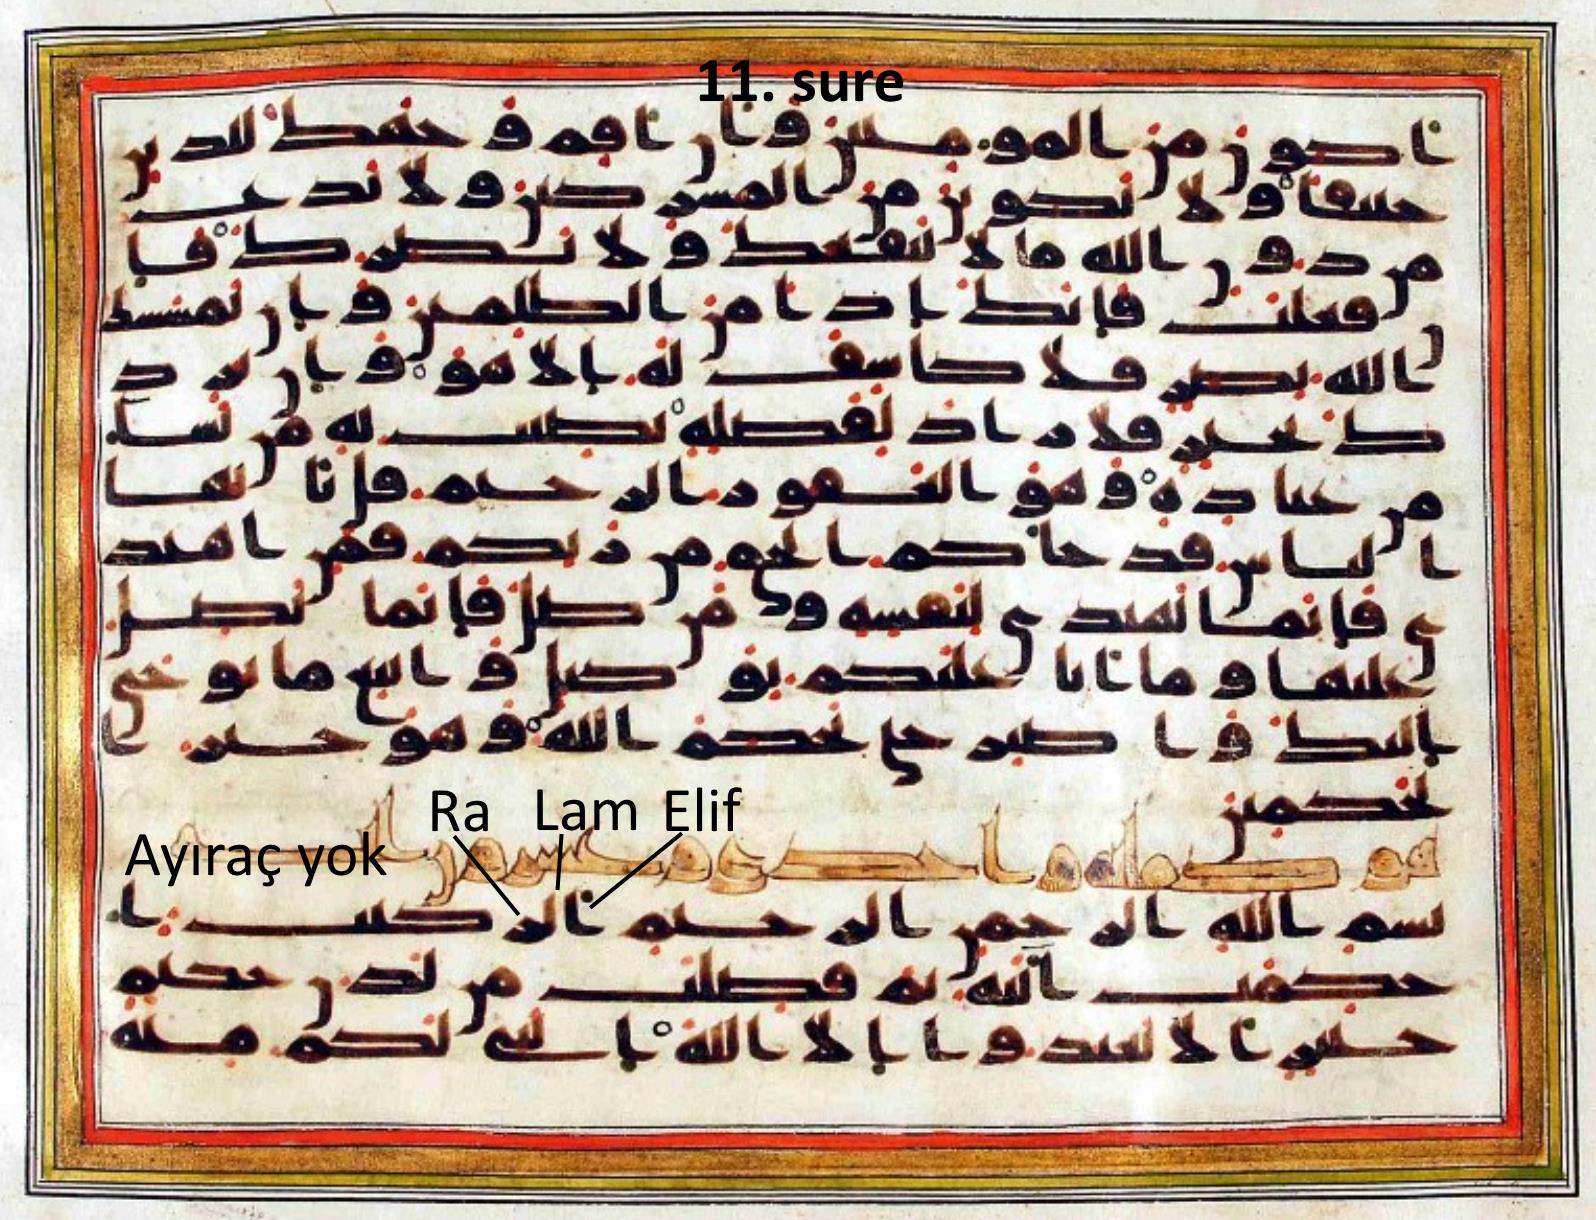 11. sure
اكون من المومنين وان اقم وجهك للدين
حنيفا ولا تكونن من المشركين ولا تدع
من دون الله ما لا ينفعك ولا يضرك فا
ن فعلت فانك اذا من الظلمين وان يمسسك
الله بضر فلا كاشف له الا هو وان يرد
ك بخير فلا راد لفضله يصيب به من يشا
من عباده وهو الغفور الرحيم قل يايها
الناس قد جاكم الحق من ربكم فمن اهتد
ى فانما يهتدى لنفسه ومن ضل فانما يضل
عليها وما انا عليكم بوكيل واتبع ما يوحى
اليك واصبر حتى يحكم الله وهو خير ا
لحكمين
Ra Lam Elif
Ayıraç yok
هود مايه واحدى وعشرون
بسم الله الرحمن الرحيم الر كتب ا
حكمت ايته ثم فصلت من لدن حكيم
خبير الا تعبدوا الا الله اننى لكم منه